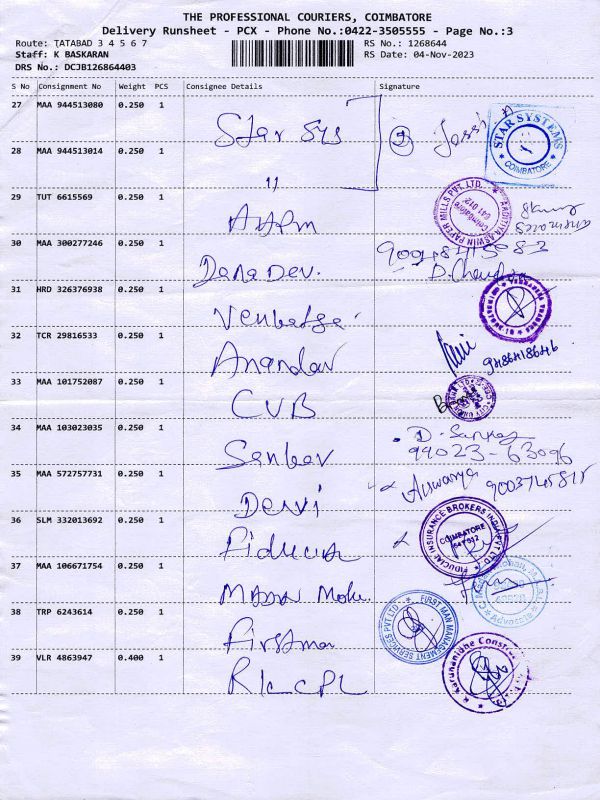 THE PROFESSIONAL COURIERS, COIMBATORE
Delivery Runsheet - PCX - Phone No.:0422-3505555 - Page No.:3
Route: TATABAD 3 4 5 6 7
RS No.: 1268644
Staff: K BASKARAN
RS Date: 04-Nov-2023
DRS No.: DCJB126864403
S No Consignment No Weight PCS Consignee Details Signature
27 MAA 944513080 0.250 1 Star Sys
STAR SYSTEMS COIMBATORE
28 MAA 944513014 0.250 1 "
29 TUT 6615569 0.250 1
AADITYA ASWIN PAPER MILLS PVT. LTD. Coimbatore 641 012
30 MAA 300277246 0.250 1 Dana Dev.
D. Chandra
31 HRD 326376938 0.250 1
32 TCR 29816533 0.250 1 Anandav
9486418646
33 MAA 101752087 0.250 1 CUB
34 MAA 103023035 0.250 1 Sankar
99023-63096
35 MAA 572757731 0.250 1 Devi
Aiswarya 9003745815
36 SLM 332013692 0.250 1 Fiducia
FIDUCIAL INSURANCE BROKERS INDIA PVT LTD COIMBATORE 641 012
37 MAA 106671754 0.250 1 Madan Mohu.
Advocate
38 TRP 6243614 0.250 1 Firstman
FIRST MAN MANAGEMENT SERVICES PVT LTD
39 VLR 4863947 0.400 1 RKCCPL